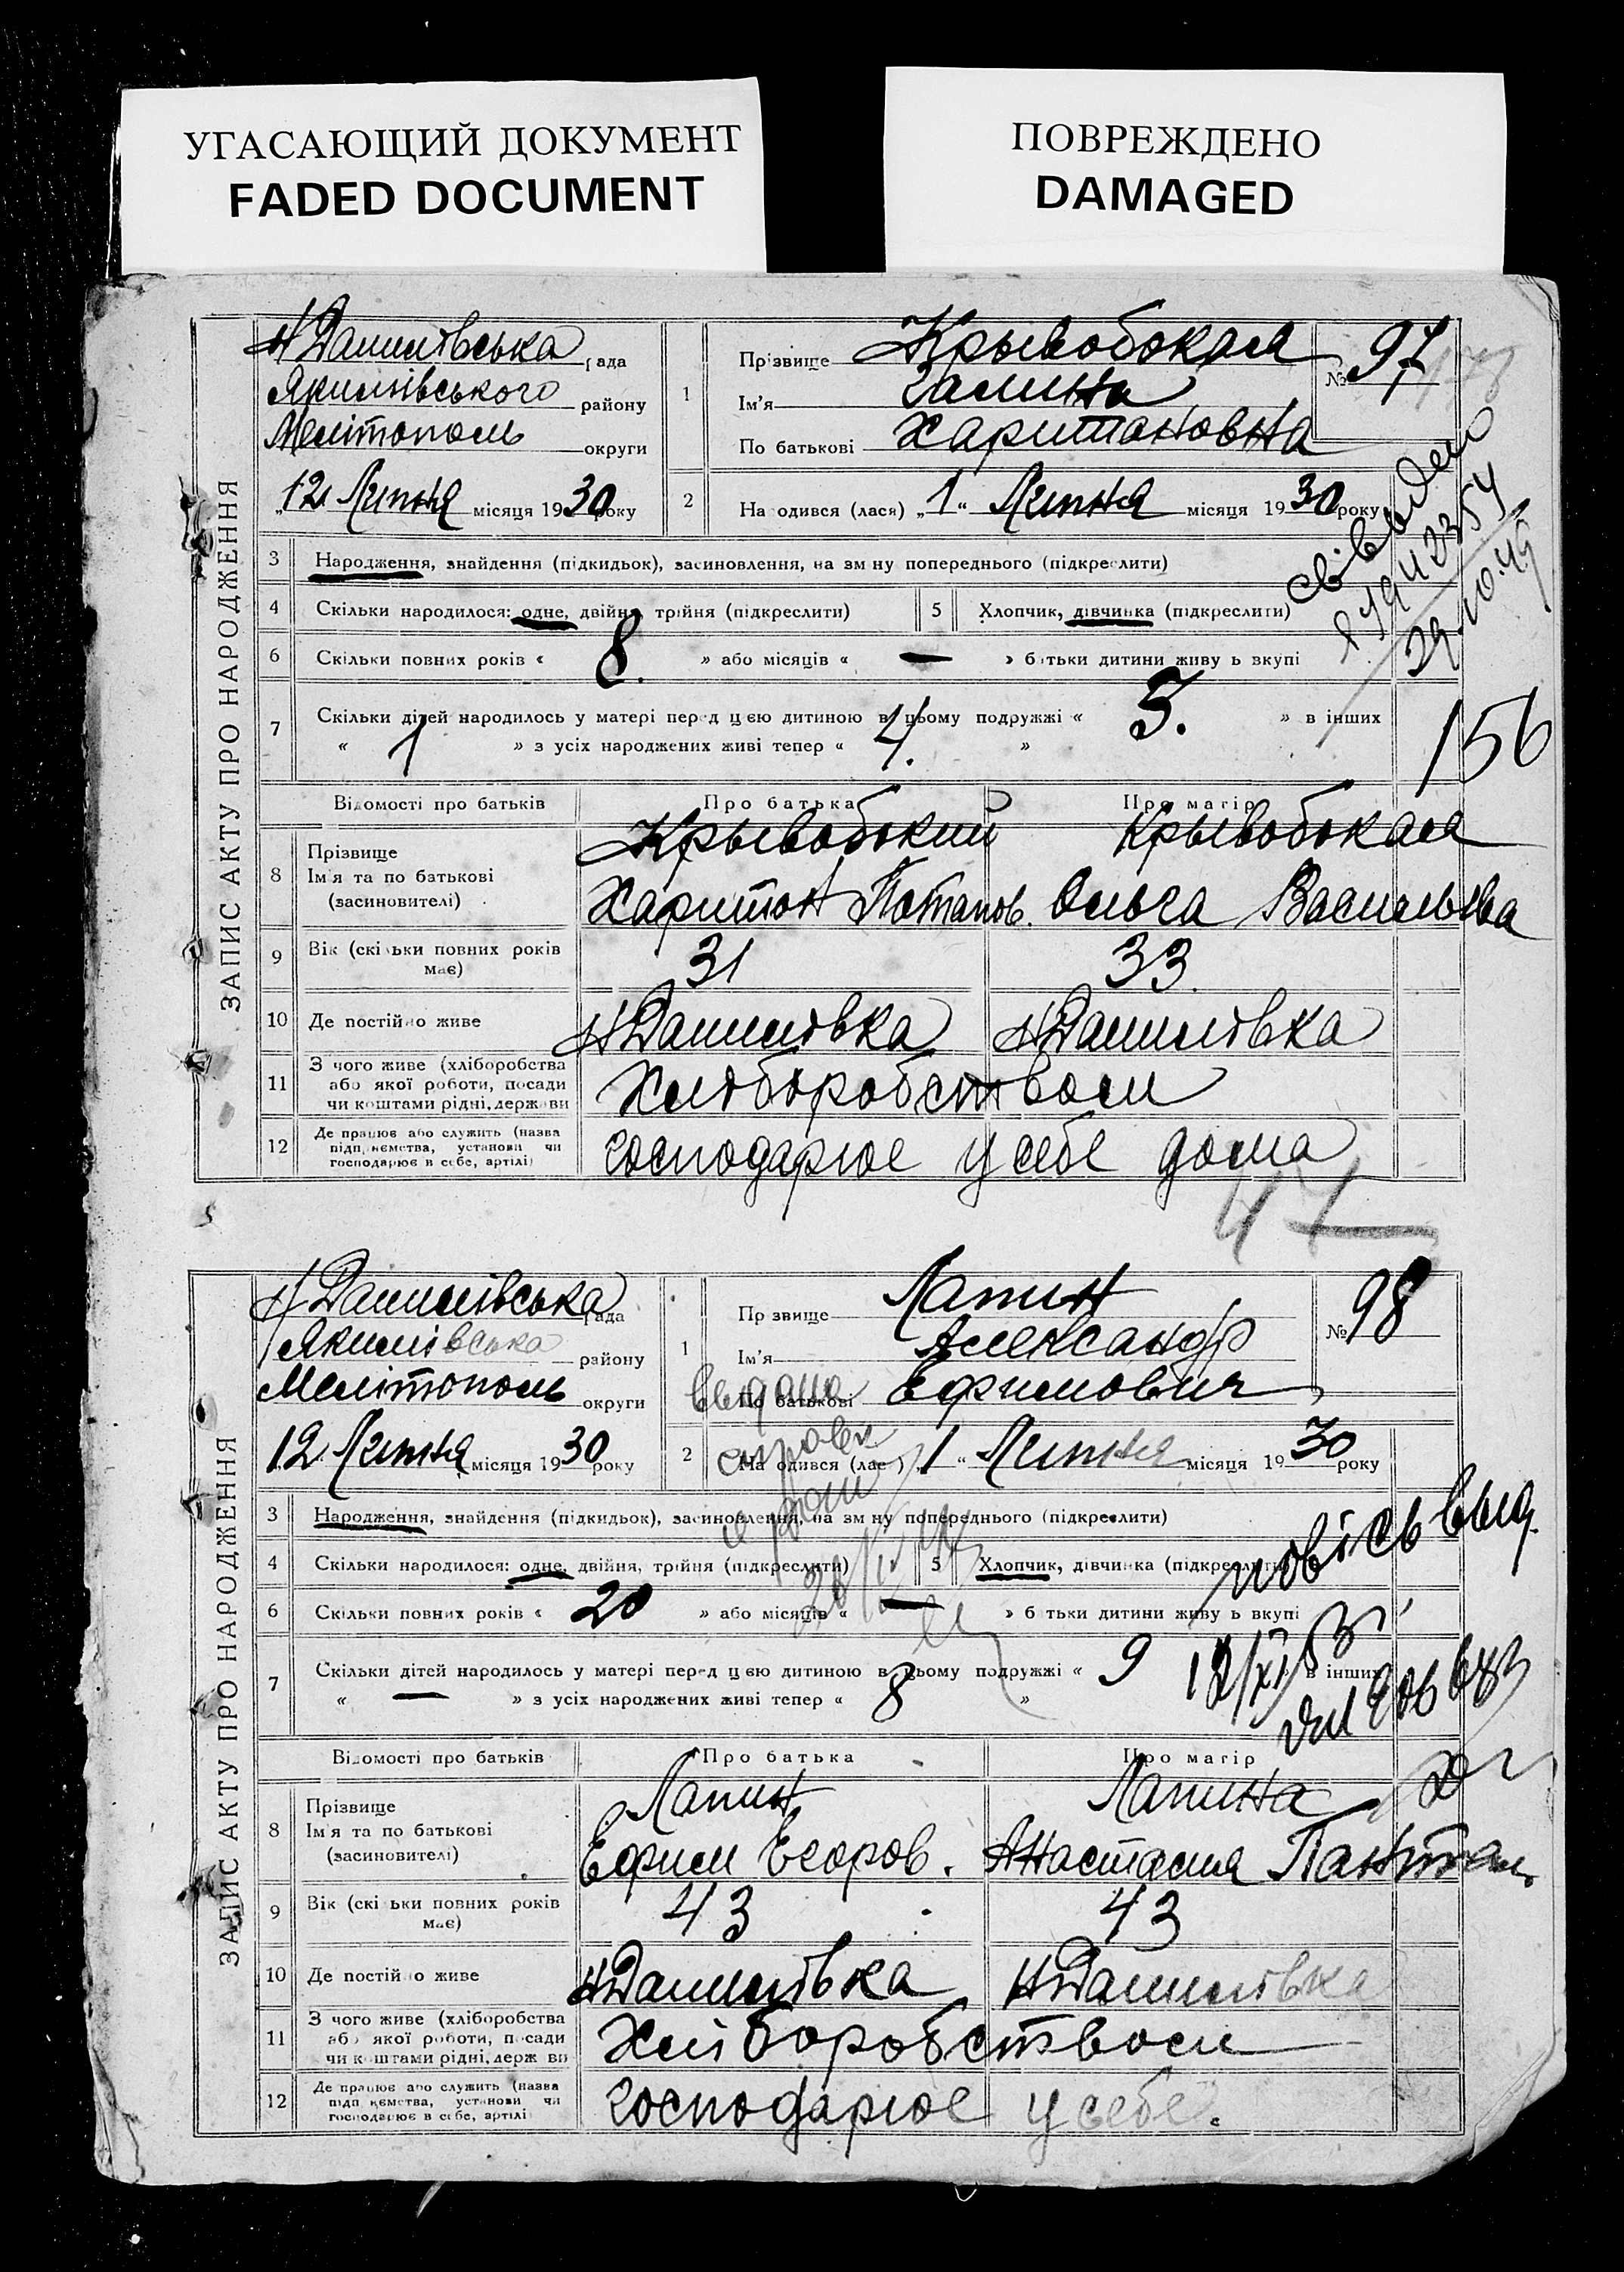 УГАСАЮЩИЙ ДОКУМЕНТ
FADED DOCUMENT
ПОВРЕЖДЕНО
DAMAGED
ЗАПИС АКТУ ПРО НАРОДЖЕННЯ
Н Данилівська рада
Якимівського району
Мелітополь округи
„12 Липня місяця 1930 року
1 Прізвище Крывобокая
Ім'я Галина
По батькові Харитоновна
№ 97
2 На одився (лася) „1“ Липня місяця 1930 року
3 Народження, знайдення (підкидьок), засиновлення, на зм ну попереднього (підкреслити)
4 Скільки народилося: одне, двійня, трійня (підкреслити) 5 Хлопчик, дівчинка (підкреслити)
6 Скільки повних років « 8. » або місяців « — » б тьки дитини живу ь вкупі
7 Скільки дітей народилось у матері перед цією дитиною в цьому подружжі « 5. » в інших
« 1 » з усіх народжених живі тепер « 4. »
29.10.49
156
Відомості про батьків Про батька Про матір
8 Прізвище
Ім'я та по батькові
(засиновителі)
Крывобокий Крывобокая
Харитон Потапов. Ольга Васильевна
9 Вік (скі ьки повних років має) 31 33
10 Де постійно живе Н Данилівка Н Данилівка
11 З чого живе (хліборобства
або якої роботи, посади
чи коштами рідні, держави
Хліборобством
12 Де працює або служить (назва
підп ємства, установи чи
господарює в себе, артілі)
господарює у себе дома
47
ЗАПИС АКТУ ПРО НАРОДЖЕННЯ
Н Данилівська рада
Якимівська району
Мелітополь округи
12 Липня місяця 1930 року
1 Пр звище Лапин
Ім'я Александр
По батькові Ефимович
№ 98
2 На одився (лас ) „1“ Липня місяця 1930 року
3 Народження, знайдення (підкидьок), засиновлення, на зм ну попереднього (підкреслити)
4 Скільки народилося: одне, двійня, трійня (підкреслити) 5 Хлопчик, дівчинка (підкреслити)
6 Скільки повних років « 20 » або місяців « — » б тьки дитини живу ь вкупі
7 Скільки дітей народилось у матері перед цією дитиною в цьому подружжі « 9 » в інших
« — » з усіх народжених живі тепер « 8 »
выдана
Відомості про батьків Про батька Про матір
8 Прізвище
Ім'я та по батькові
(засиновителі)
Лапин Лапина
Ефим Егоров. Анастасия Пантел.
9 Вік (скі ьки повних років має) 43 43
10 Де постій о живе Н Данилівка Н Данилівка
11 З чого живе (хліборобства
або якої роботи, посади
чи коштами рідні, держ ви
Хліборобством
12 Де працює або служить (назва
підп ємства, установи чи
господарює в себе, артілі
господарює у себе.